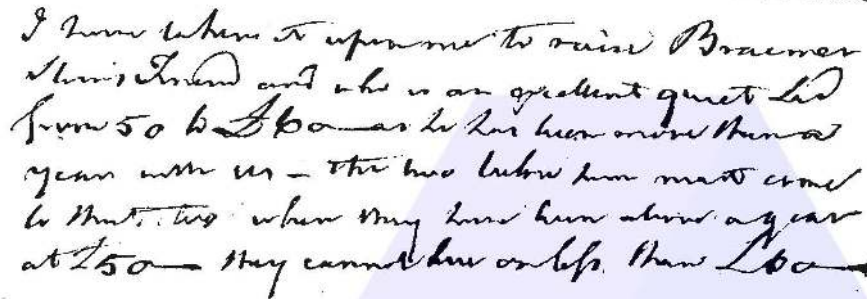 I have taken it upon me to raise Braemer
Friend and who is an excellent quiet Lad
from 50 to £60 — as he has been more than a
year with us — The two below him must come
to that, too when they have been above a year
at £50 — they cannot live on less than £60 —